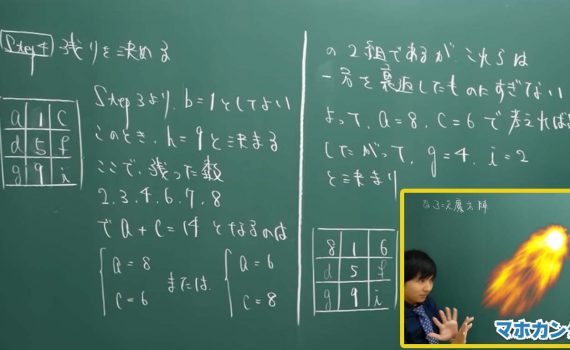 Step4 残りを決める
a 1 c
d 5 f
g 9 i
Step3より、b=1としてよい
このとき、h=9と決まる
ここで、残った数
2.3.4.6.7.8
でa+c=14となるのは
a=8
c=6
または
a=6
c=8
の2組であるが、これらは
一方を裏返したものにすぎない
よって、a=8、c=6で考えれば
したがって、g=4、i=2
と決まり
8 1 6
d 5 f
g 9 i
3次魔方陣
マホカン